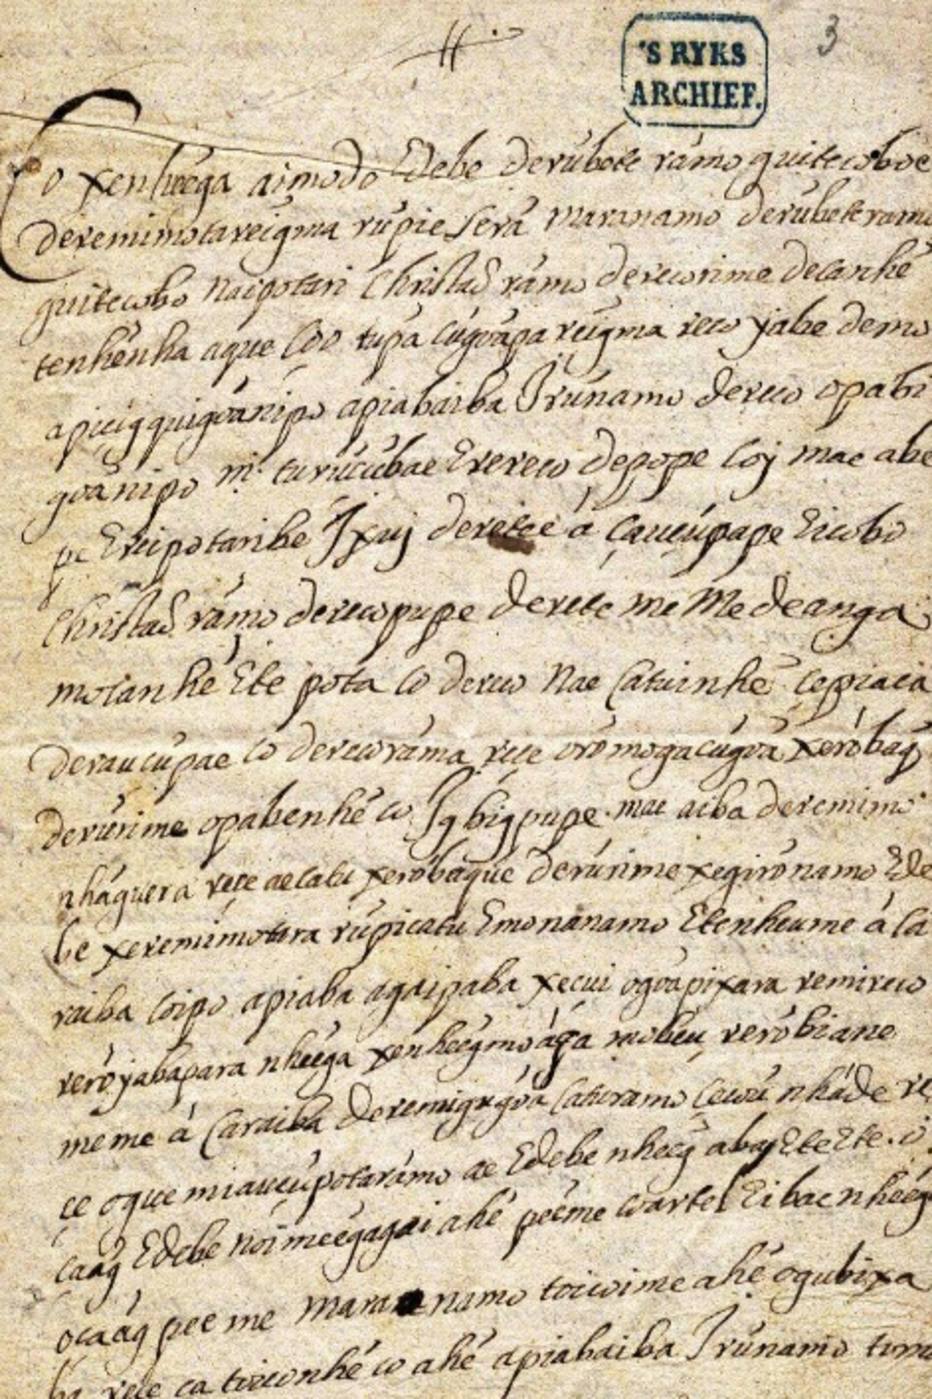 3
'S RYKS
ARCHIEF.
Co xenheega aimodo Edebe derubete ramo guitecoboe
deremimotareigma rupie sera maranamo derubete ramo
guitecobo naipotari Christaõ ramo derecorime decanhé
tenhénha aque coo tupã cugoapareigma reco yabe demo
apicigquigoanipo apiabaiba Irunamo dereco opabi
goanipo mi turucubae Erereco depope coy mae abe
pe Ereipotaribe Ixuy deretee á çauçúpape Eicobo
Christaõ ramo derecopupe derete meme deanga
mocanhé Ete pota co dereco nae catuinhé cepiaca
derauçupae co derecorama rece oromogacugoá xerobaq
derurime opabenhé co Iqbiqpupe mae aiba deremimo
nháguera rece aecatu xerobaque derurime xegironamo Ede
be xeremimotara rupicatu Emonanamo Etenheume á ca
raiba coipo apiaba agaipaba xecui ogoapixara remireco
reroyabapara nheega xenheegmoaga mobeu rerobiane
meme á Caraiba deremigugoá caturamo cecou nháde re
çe oque miauçupotaramo ae Edebe nheeg abay EteEte. o
caáq Edebe noimeegagai ahé peéme coartel Eibae nheég
ocaáq pee me maranamo toicoime ahé ogubixa
ba rece ca toiconhé co ahé apiabaiba Irunamo